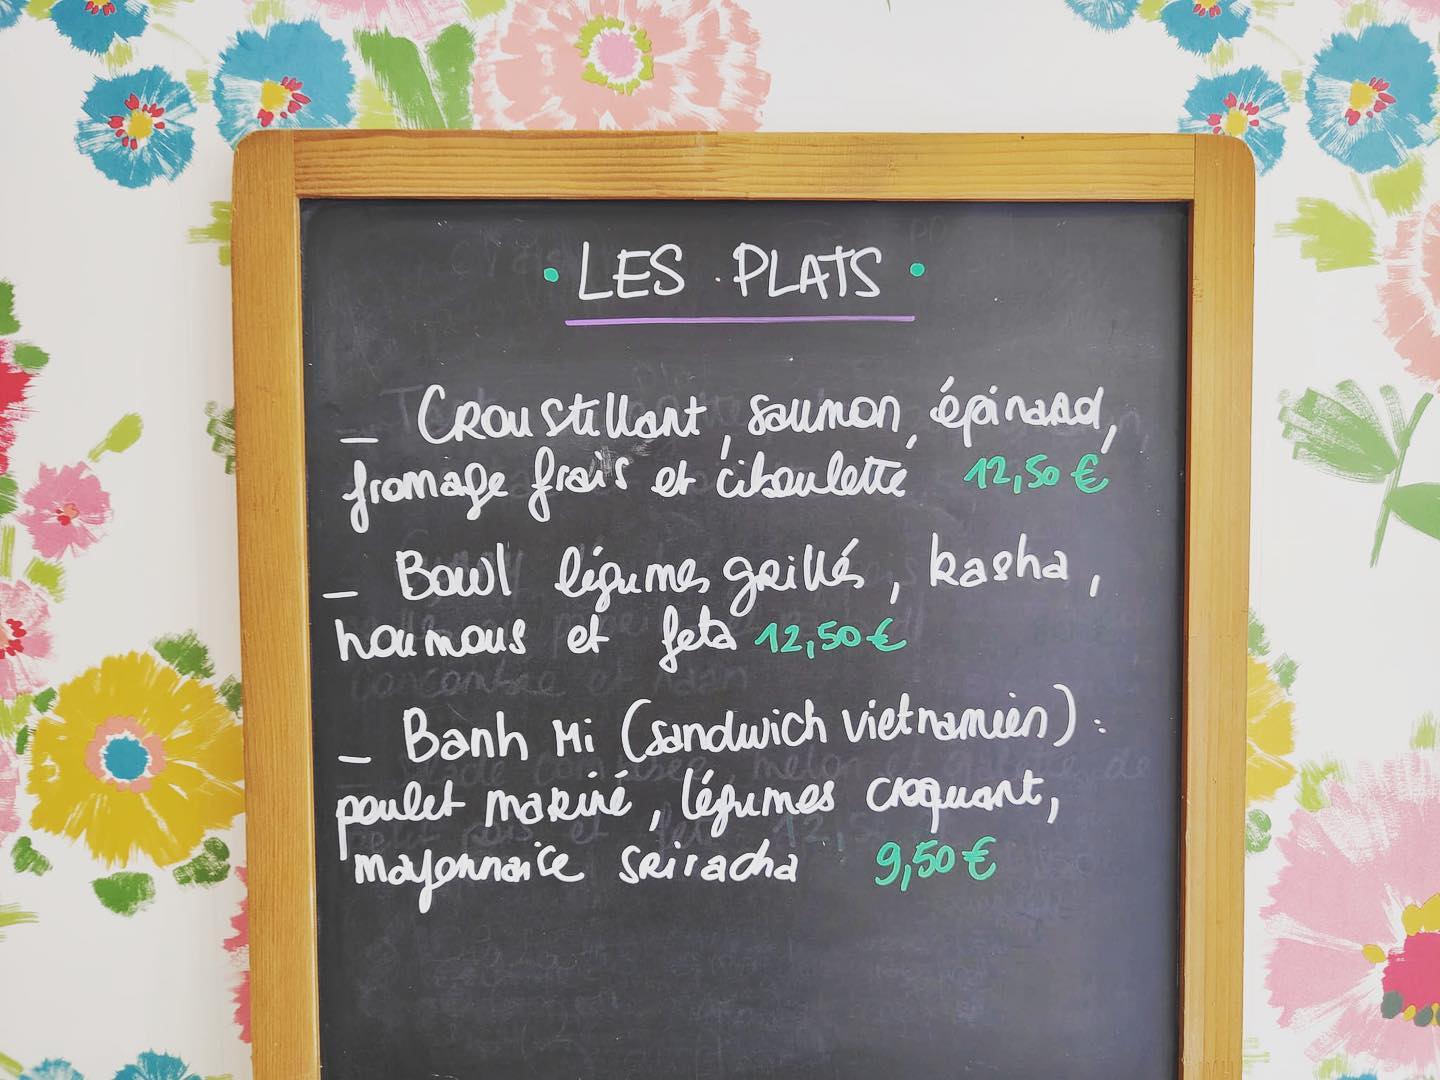 • LES PLATS •
_ Croustillant, saumon, épinard,
fromage frais et ciboulette 12,50 €
_ Bowl légumes grillés, kasha,
houmous et feta 12,50 €
_ Banh Mi (sandwich vietnamien) :
poulet mariné, légumes croquant,
mayonnaise sriracha 9,50 €